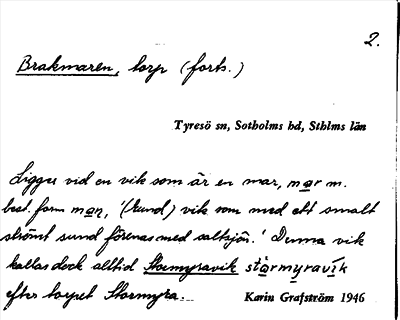 2.
Brakmaren, torp (forts.)
Tyresö sn, Sotholms hd, Sthlms län
Ligger vid en vik som är en mar, mar m.
best. form man, '(rund) vik som med ett smalt
strömt sund förenas med saltsjön.' Denna vik
kallas dock alltid Stormyravik stårmyravík
efter torpet Stormyra.
Karin Grafström 1946